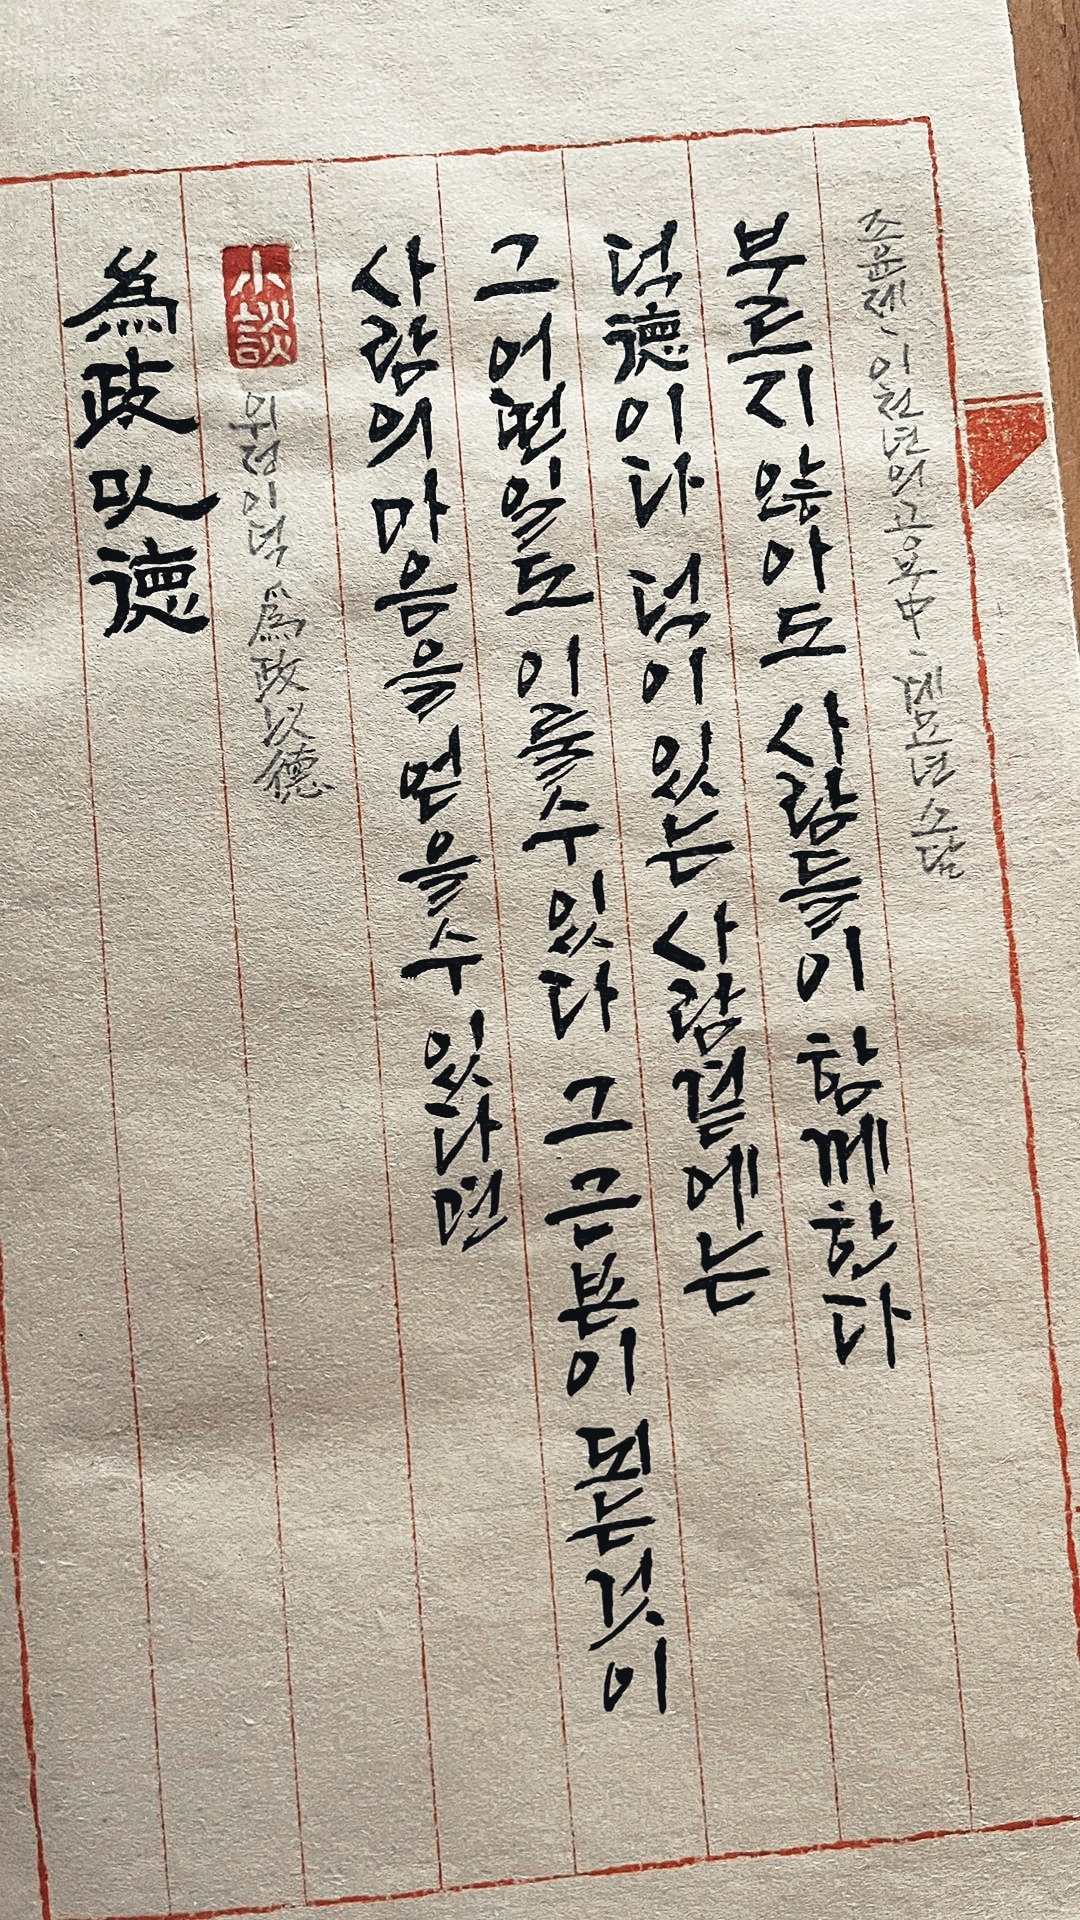 為政以德
小談
위정이덕 為政以德
사람의 마음을 얻을수 있다면
그 어떤일도 이룰수있다 그 근본이 되는것이
덕德이다 덕이 있는 사람곁에는
부르지 않아도 사람들이 함께한다
조윤제、이천년의 공부中、계묘년 소담